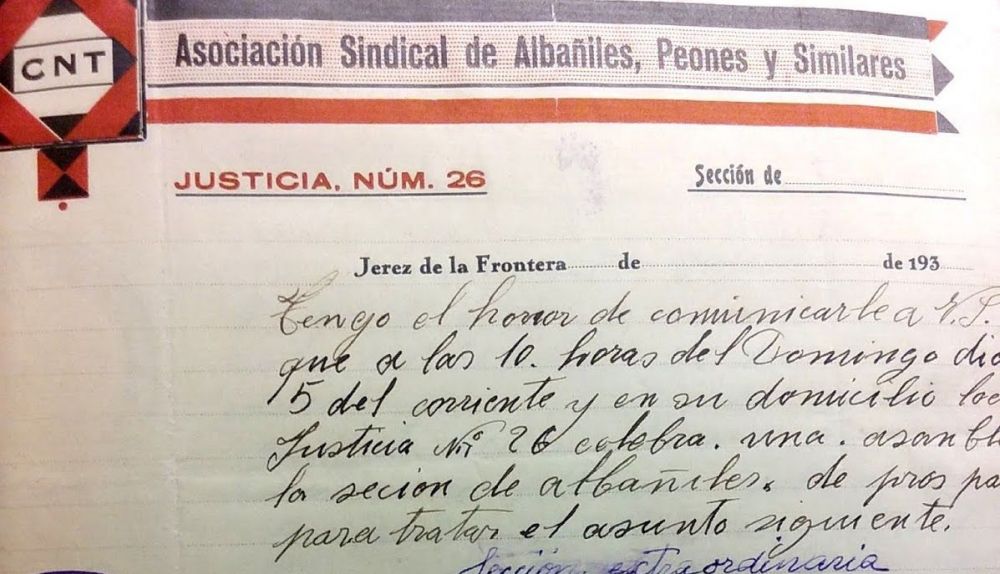 CNT
Asociación Sindical de Albañiles, Peones y Similares
JUSTICIA, NÚM. 26
Sección de
Jerez de la Frontera de de 193
Tengo el honor de comunicarle a V.S.
que a las 10. horas del Domingo dia
15 del corriente y en su domicilio loc
Justicia Nº 26 celebra. una. asambl
la secion de albañiles. de pros pa
para tratar el asunto siguiente.
Sección extraordinaria